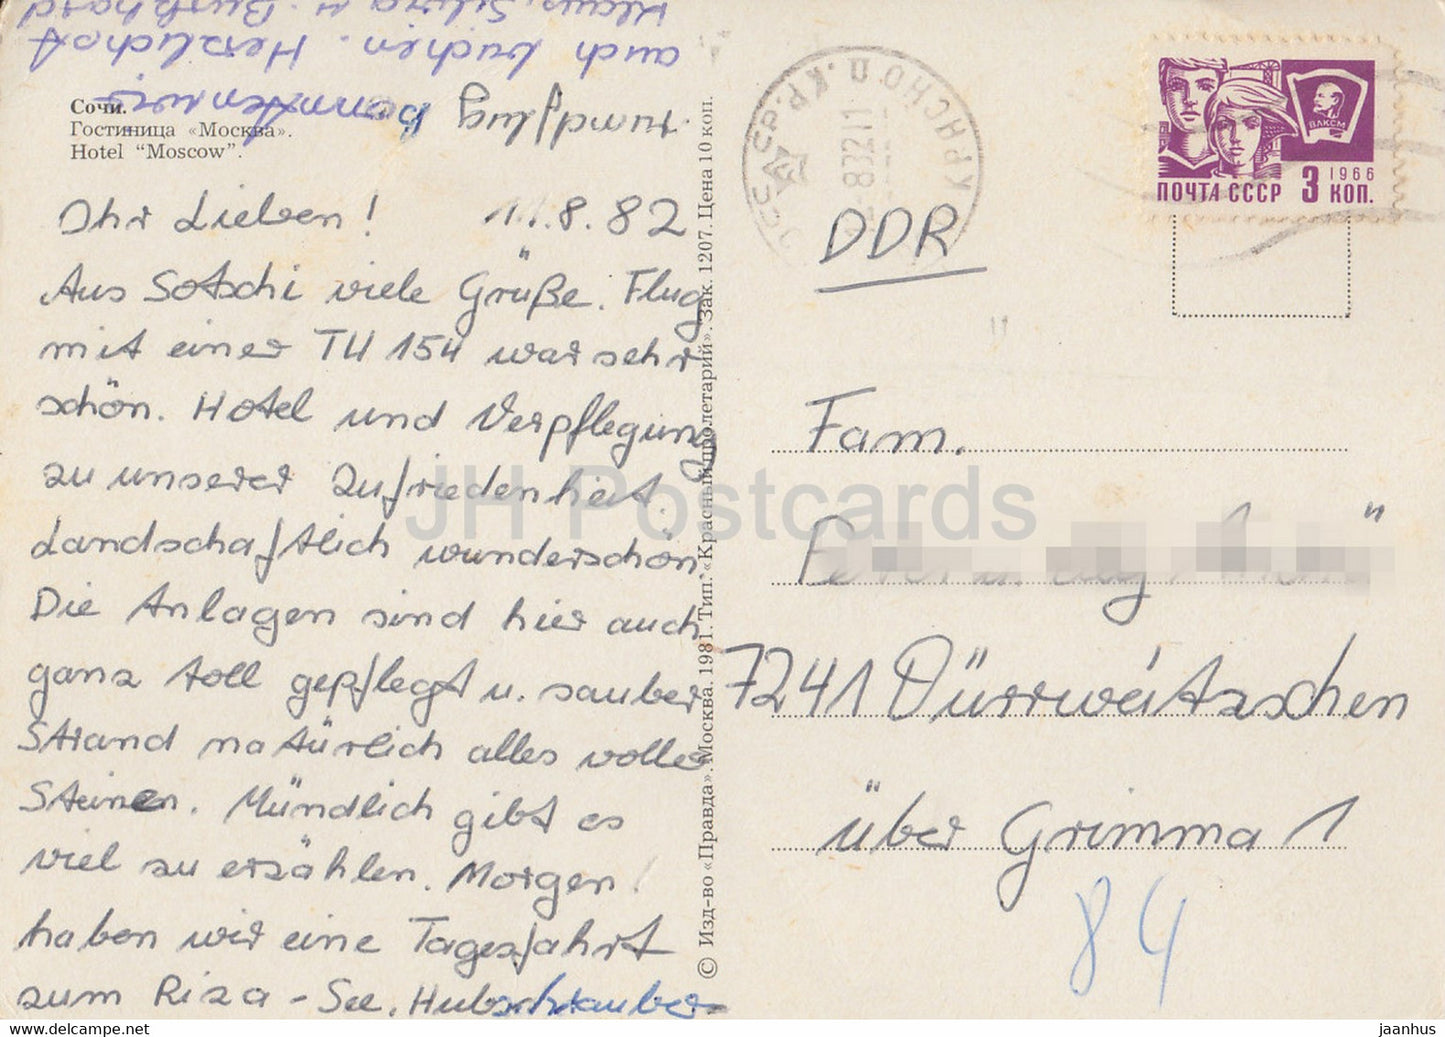 Сочи.
Гостиница «Москва».
Hotel "Moscow".
Ihr Lieben! 11.8.82
Aus Sotschi viele Grüße. Flug
mit einer TU 154 war sehr
schön. Hotel und Verpflegung
zu unserer Zufriedenheit.
Landschaftlich wunderschön.
Die Anlagen sind hier auch
ganz toll gepflegt u. sauber
Strand natürlich alles voller
Steinen. Mündlich gibt es
viel zu erzählen. Morgen
haben wir eine Tagesfahrt
zum Riza-See. Hubschrauber-
rundflug konnten wir
auch buchen. Herzlichst
Klaus, Silvia u. Burkhard
© Изд-во «Правда». Москва. 1981. Тип. «Красный пролетарий». Зак. 1207. Цена 10 коп.
ВЛКСМ
1966
ПОЧТА СССР 3 КОП.
DDR
Fam.
7241 Dürrweitzschen
über Grimma 1
84
JH Postcards
www.delcampe.net
jaanhus